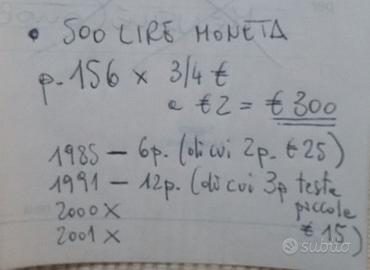 • 500 LIRE MONETA
p. 156 x 3/4 €
a € 2 = € 300
1985 – 6p. (di cui 2p. € 25)
1991 – 12p. (di cui 3p teste
piccole
2000 X
€ 15)
2001 X
subito